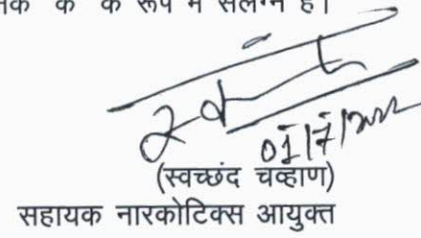 क के रूप में संलग्न है।
01/7/2022
(स्वच्छंद चव्हाण)
सहायक नारकोटिक्स आयुक्त